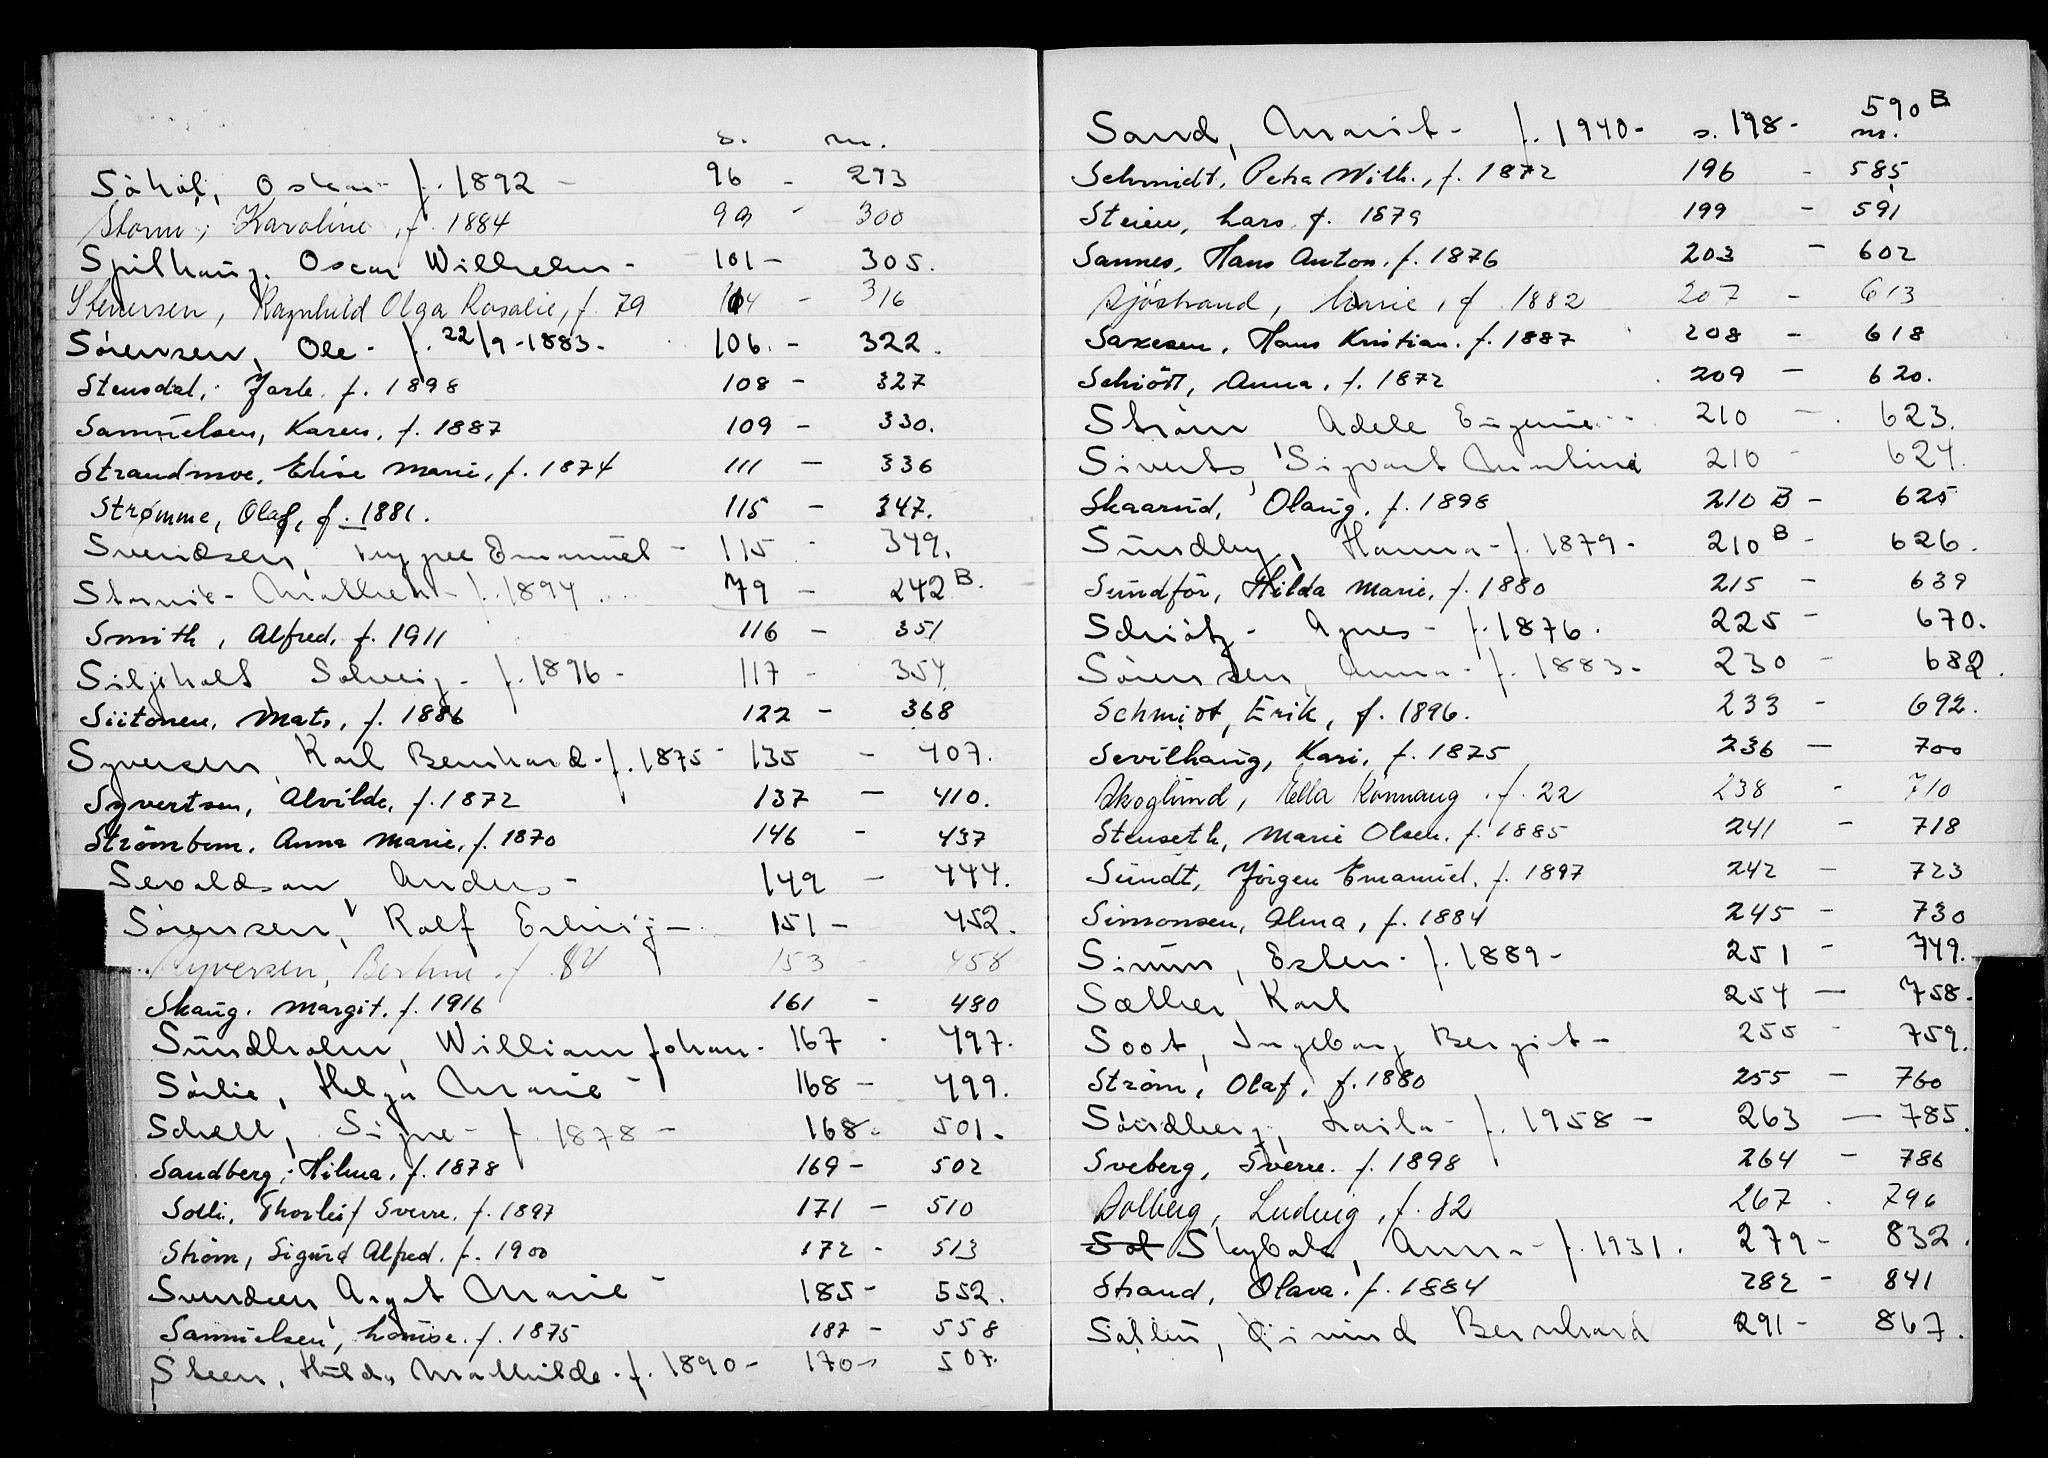 s. nr.
Såhol, Oskar - f. 1892 - 96 - 293
Storm, Karoline, f. 1884 99 - 300
Spilhaug, Oscar Wilhelm - 101 - 305.
Stenersen, Ragnhild Olga Rosalie, f. 79 104 - 316
Sörensen, Ole - f. 22/9-1883 - 106 - 322.
Stensdal, Jarle. f. 1898 108 - 327
Samuelsen, Karen, f. 1887 109 - 330.
Strandmoe, Elise Marie, f. 1874 111 - 336
Strømme, Olaf, f. 1881. 115 - 347.
Svendsen, Trygve Emanuel - 115 - 349.
f. 1894 79 - 242 B.
Smith, Alfred, f. 1911 116 - 351
Siljeholt Solveig - f. 1896 - 117 - 354
Siitonen, Mats, f. 1886 122 - 368
Syversen, Karl Bernhard - f. 1875 - 135 - 407.
Syvertsen, Alvilde, f. 1872 137 - 410.
Strömbom, Anna Marie, f. 1870 146 - 437
Sevaldson, Anders - 149 - 444.
Sörensen, Rolf Erling - 151 - 452.
Syversen, f. 84 153 - 458
Skaug, Margit, f. 1916 161 - 480
Sundholm, William Johan - 167 - 497.
Sörlie, Helga Marie - 168 - 499.
Schell, Signe - f. 1878 - 168 - 501.
Sandberg, Hilma, f. 1878 169 - 502
Solli, Thorleif Sverre. f. 1897 171 - 510
Ström, Sigurd Alfred. f. 1900 172 - 513
Svendsen, Aagot Marie - 185 - 552.
Samuelsen, Louise. f. 1875 187 - 558
Steen, Hilda Mathilde - f. 1890 - 170 - 507.
Sand, Marit - f. 1940 - s. 198 - 590 B
nr.
Schmidt, Petra Wilh., f. 1872 196 - 585
Steien, Lars. f. 1879 199 - 591
Sannes, Hans Anton. f. 1876 203 - 602
Sjöstrand, Marie, f. 1882 207 - 613
Saxesen, Hans Kristian. f. 1887 208 - 618
Schiött, Anna, f. 1872 209 - 620.
Ström Adele Eugenie - 210 - 623.
Siverts, Sigvart 210 - 624.
Skaarud, Olaug, f. 1898 210 B - 625
Sundby, Hanna - f. 1879 - 210 B - 626.
Sundför, Hilda Marie, f. 1880 215 - 639
Schiötz - Agnes - f. 1876. 225 - 670.
Sörensen, Anna - f. 1883 - 230 - 682.
Schmidt, Erik, f. 1896. 233 - 692.
Sevilhaug, Kari, f. 1875 236 - 700
Skoglund, Ella Rönnaug, f. 22 238 - 710
Stenseth, Marie Olsen. f. 1885 241 - 718
Sundt, Jörgen Emanuel, f. 1897 242 - 723
Simonsen, Alma, f. 1884 245 - 730
Simun, Esten - f. 1889 - 251 - 749.
Sæther Karl 254 - 758.
Soot, Ingeborg Bergit - 255 - 759.
Ström, Olaf, f. 1880 255 - 760
Söndberg, Laila - f. 1958 - 263 - 785.
Sveberg, Sverre. f. 1898 264 - 786
Solberg, Ludvig, f. 82 267 - 796
Sol Anna - f. 1931. 279 - 832.
Strand, Olava. f. 1884 282 - 841
Bernhard 291 - 867.